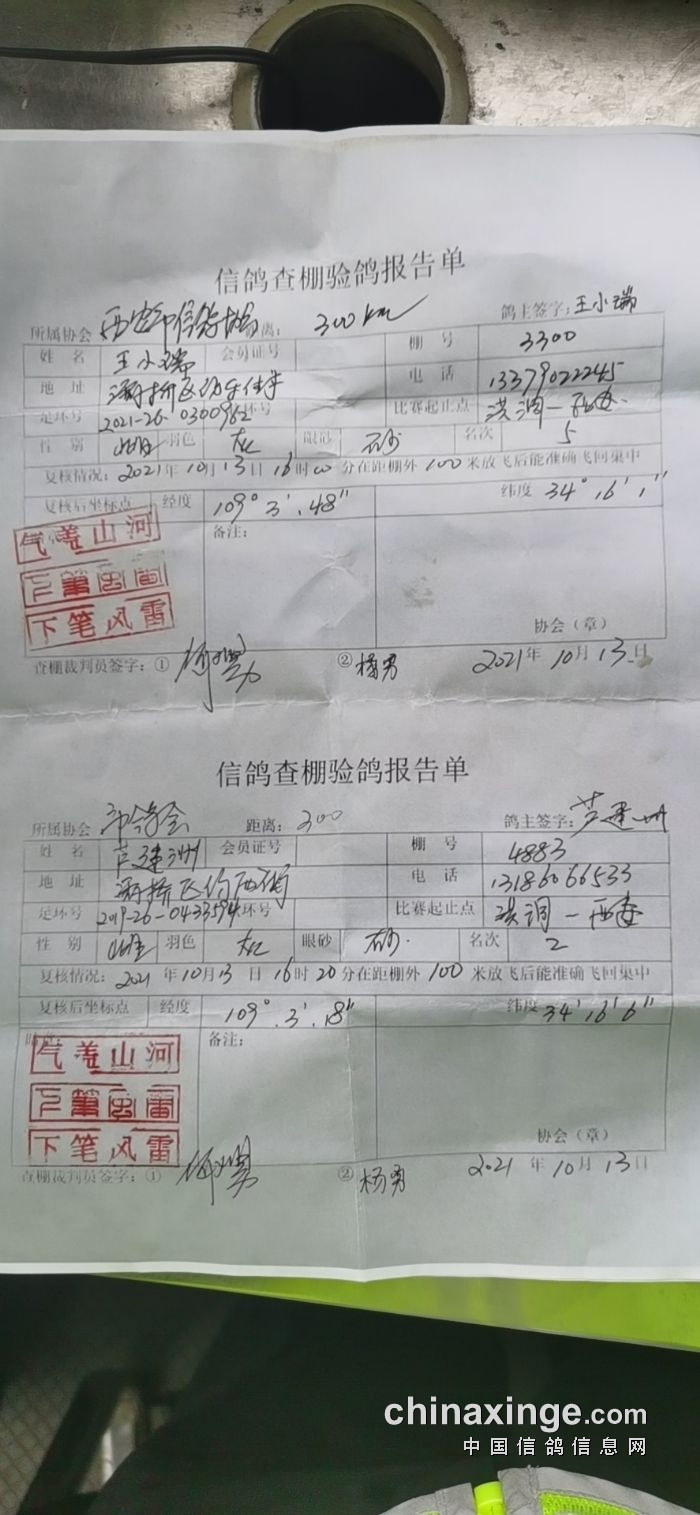 信鸽查棚验鸽报告单
所属协会 西安市信鸽协会 距离: 300km 鸽主签字: 王小瑞
姓名 王小瑞 会员证号 棚号 3300
地址 灞桥区 电话 13379022245
足环号 2021-26-0300962 环号 比赛起止点 洪洞—西安
性别 雄 羽色 灰 眼砂 砂 名次 5
复核情况: 2021年10月13日16时00分在距棚外100米放飞后能准确飞回集中
复核后坐标点 经度 109°3'.48" 纬度 34°16'1"
备注:
气盖山河
下笔风雷
协会（章）
查棚裁判员签字: ① ② 杨勇 2021年10月13日
信鸽查棚验鸽报告单
所属协会 市鸽会 距离: 300 鸽主签字: 芦建洲
姓名 芦建洲 会员证号 棚号 4883
地址 灞桥区 电话 13186066533
足环号 2019-26-0433594 环号 比赛起止点 洪洞—西安
性别 雄 羽色 灰 眼砂 砂 名次 2
复核情况: 2021年10月13日16时20分在距棚外100米放飞后能准确飞回集中
复核后坐标点 经度 109°.3'.18" 纬度 34'16'6"
备注:
气盖山河
下笔风雷
协会（章）
查棚裁判员签字: ① ② 杨勇 2021年10月13日
chinaxinge.com
中国信鸽信息网